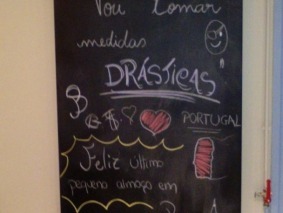 Vou tomar
medidas
DRÁSTICAS
PORTUGAL
Feliz último
pequeno almoço em